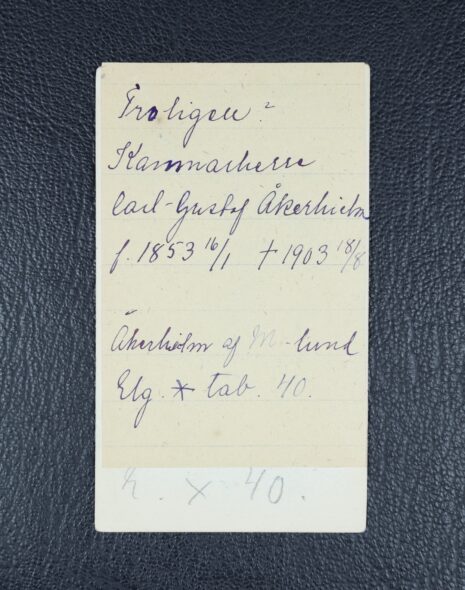 Troligen?
Kammarherre
Carl-Gustaf Åkerhielm
f. 1853 16/1 † 1903 18/8
Åkerhielm af M lund
Elg. * tab. 40.
x 40.